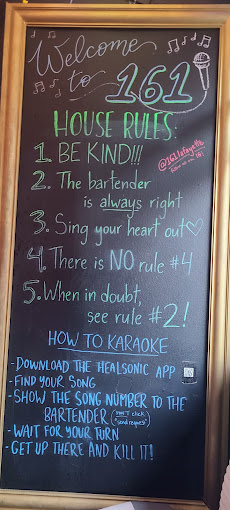 Welcome
to 161
HOUSE RULES:
@161lafayette
1. BE KIND!!!
2. The bartender
is always right
3. Sing your heart out♡
4. There is NO rule #4
5. When in doubt,
see rule #2!
HOW TO KARAOKE
-DOWNLOAD THE HEALSONIC APP
-FIND YOUR SONG
-SHOW THE SONG NUMBER TO THE
BARTENDER (DON'T click
"Send request")
-WAIT FOR YOUR TURN
-GET UP THERE AND KILL IT!